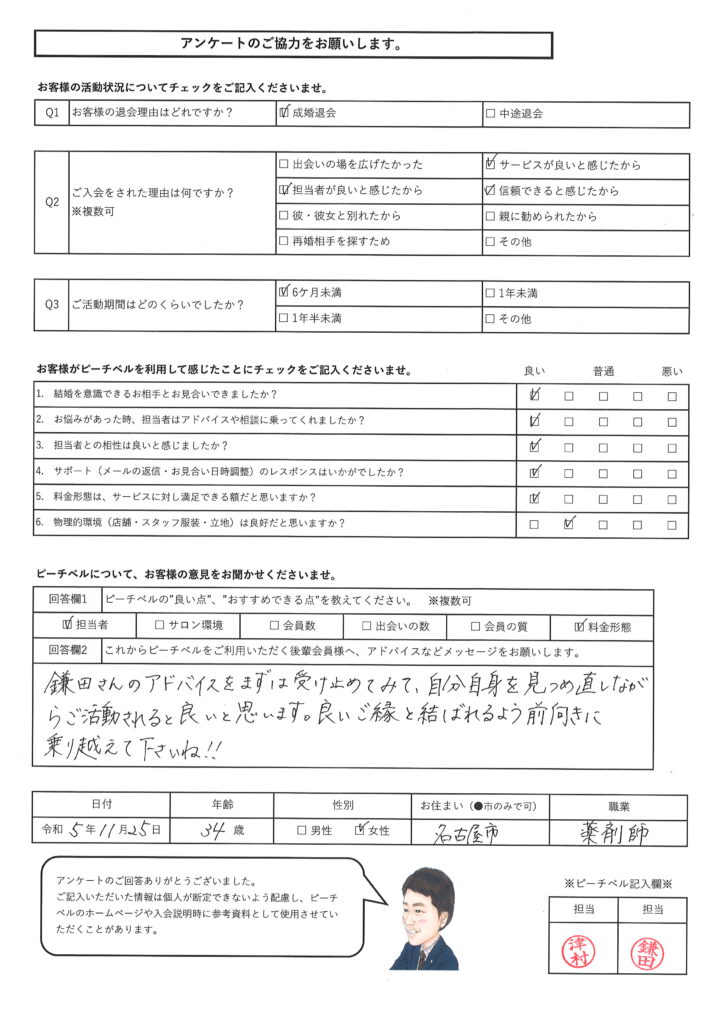 アンケートのご協力をお願いします。
お客様の活動状況についてチェックをご記入くださいませ。
Q1 お客様の退会理由はどれですか? ☑成婚退会 □中途退会
Q2 ご入会をされた理由は何ですか? ※複数可
□出会いの場を広げたかった ☑サービスが良いと感じたから
☑担当者が良いと感じたから ☑信頼できると感じたから
□彼・彼女と別れたから □親に勧められたから
□再婚相手を探すため □その他
Q3 ご活動期間はどのくらいでしたか?
☑6ケ月未満 □1年未満
□1年半未満 □その他
お客様がピーチベルを利用して感じたことにチェックをご記入くださいませ。 良い 普通 悪い
1. 結婚を意識できるお相手とお見合いできましたか? ☑ □ □ □ □
2. お悩みがあった時、担当者はアドバイスや相談に乗ってくれましたか? ☑ □ □ □ □
3. 担当者との相性は良いと感じましたか? ☑ □ □ □ □
4. サポート(メールの返信・お見合い日時調整)のレスポンスはいかがでしたか? ☑ □ □ □ □
5. 料金形態は、サービスに対し満足できる額だと思いますか? ☑ □ □ □ □
6. 物理的環境(店舗・スタッフ服装・立地)は良好だと思いますか? □ ☑ □ □ □
ピーチベルについて、お客様の意見をお聞かせくださいませ。
回答欄1 ピーチベルの"良い点"、"おすすめできる点"を教えてください。 ※複数可
☑担当者 □サロン環境 □会員数 □出会いの数 □会員の質 ☑料金形態
回答欄2 これからピーチベルをご利用いただく後輩会員様へ、アドバイスなどメッセージをお願いします。
鎌田さんのアドバイスをまずは受け止めてみて、自分自身を見つめ直しなが
らご活動されると良いと思います。良いご縁と結ばれるよう前向きに
乗り越えて下さいね!!
日付 年齢 性別 お住まい(●市のみで可) 職業
令和5年11月25日 34歳 □男性 ☑女性 名古屋市 薬剤師
アンケートのご回答ありがとうございました。
ご記入いただいた情報は個人が断定できないよう配慮し、ピーチ
ベルのホームページや入会説明時に参考資料として使用させてい
ただくことがあります。
※ピーチベル記入欄※
担当 担当
津村 鎌田